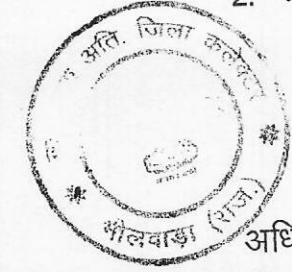 2.
अति. जिला कलेक्टर
भीलवाड़ा (राज.)
अधि